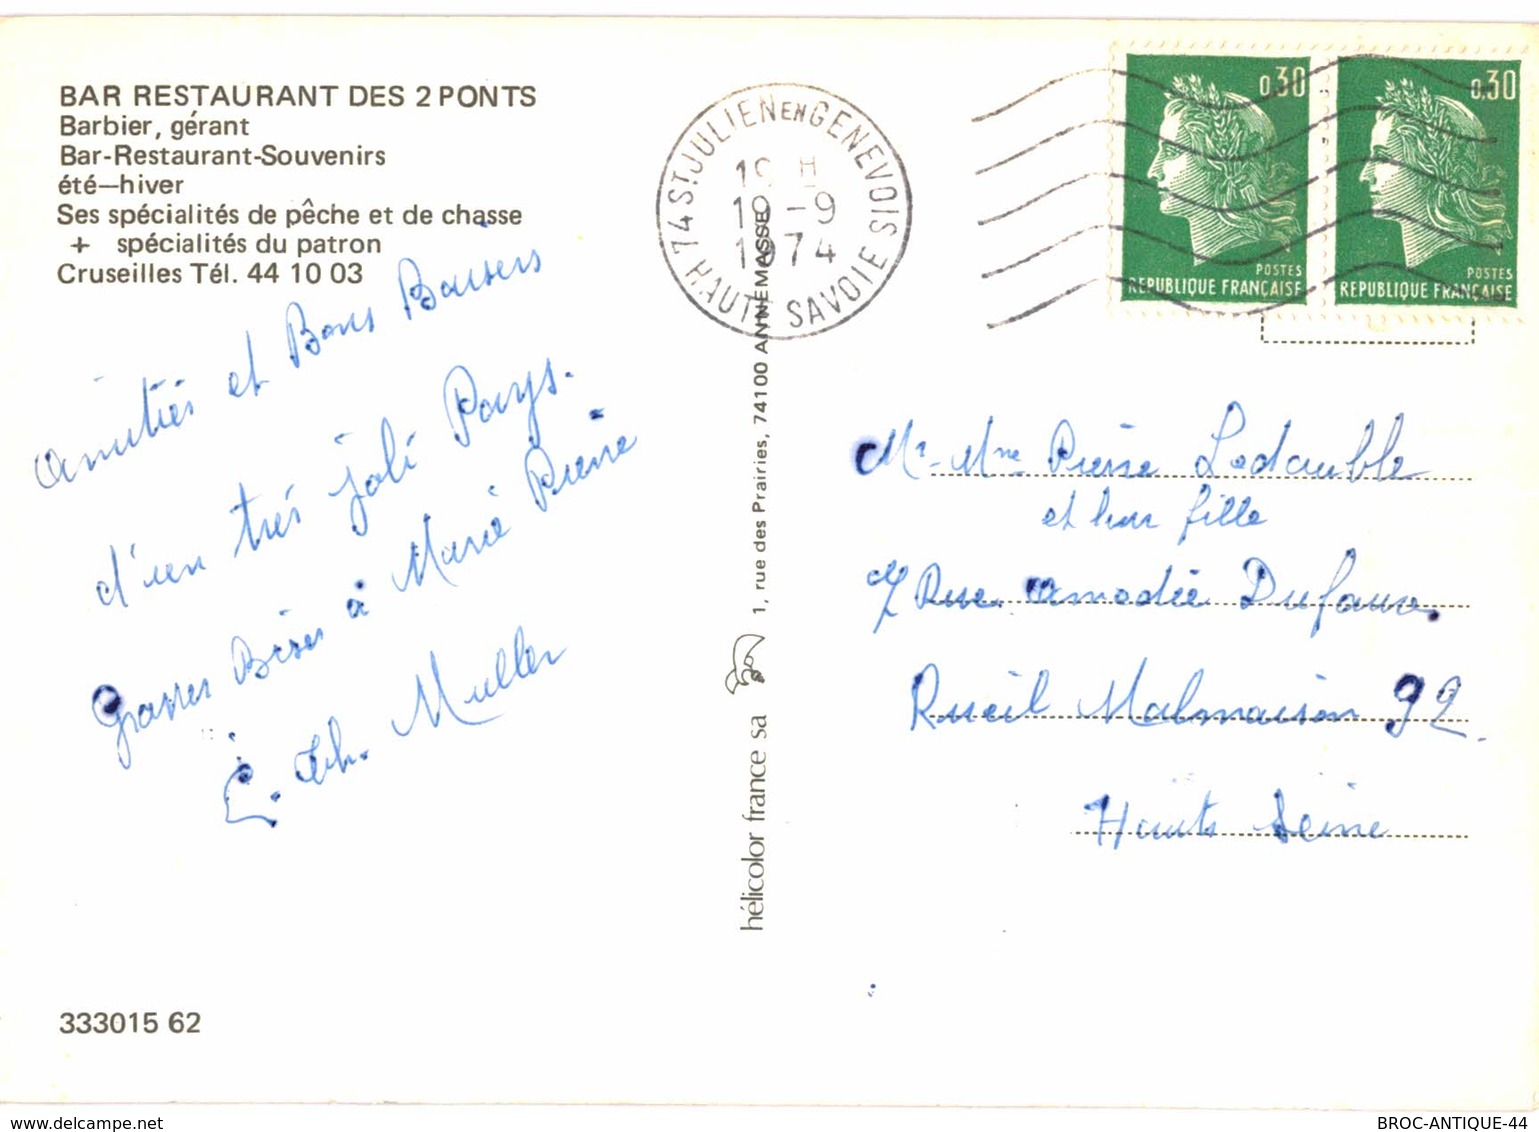 BAR RESTAURANT DES 2 PONTS
Barbier, gérant
Bar-Restaurant-Souvenirs
été—hiver
Ses spécialités de pêche et de chasse
+ spécialités du patron
Cruseilles Tél. 44 10 03
amitiés et Bons Baisers
d'un très joli Pays.
Grosses Bises à Marie Pierre
E. Th. Muller
333015 62
74 ST JULIEN EN GENEVOIS
19 H
19 -9
1974
HAUTE SAVOIE
0,30
POSTES
REPUBLIQUE FRANÇAISE
0,30
POSTES
REPUBLIQUE FRANÇAISE
hélicolor france sa
1, rue des Prairies, 74100 ANNEMASSE
Mr. Mme Pierre Ledauble
et leur fille
7 Rue Amedée Dufaure.
Rueil Malmaison 92.
Hauts Seine
delcampe.net
BROC-ANTIQUE-44